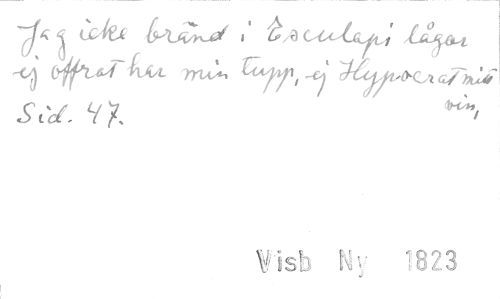 Jag icke bränd i Esculapi lågor
ej offrat har min tupp, ej Hypocrat mitt
vin,
Sid. 47.
Visb Ny 1823